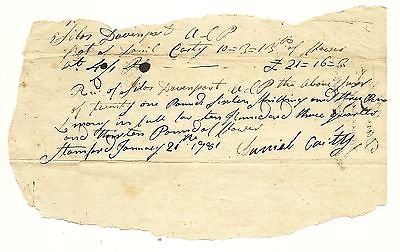 Silas Davenport A C P
Bot of Daniel Casty 10=3=13 lb of flower
at 40/ P £ 21=16=3
Recd of Silas Davenport A C P the above Sum
of twenty one Pounds Sixteen Shillings and three Pence
L money in full for ten Hundred three Quarters
and thirteen Pounds of flower
Stamford January 26th 1781 Daniel Casty